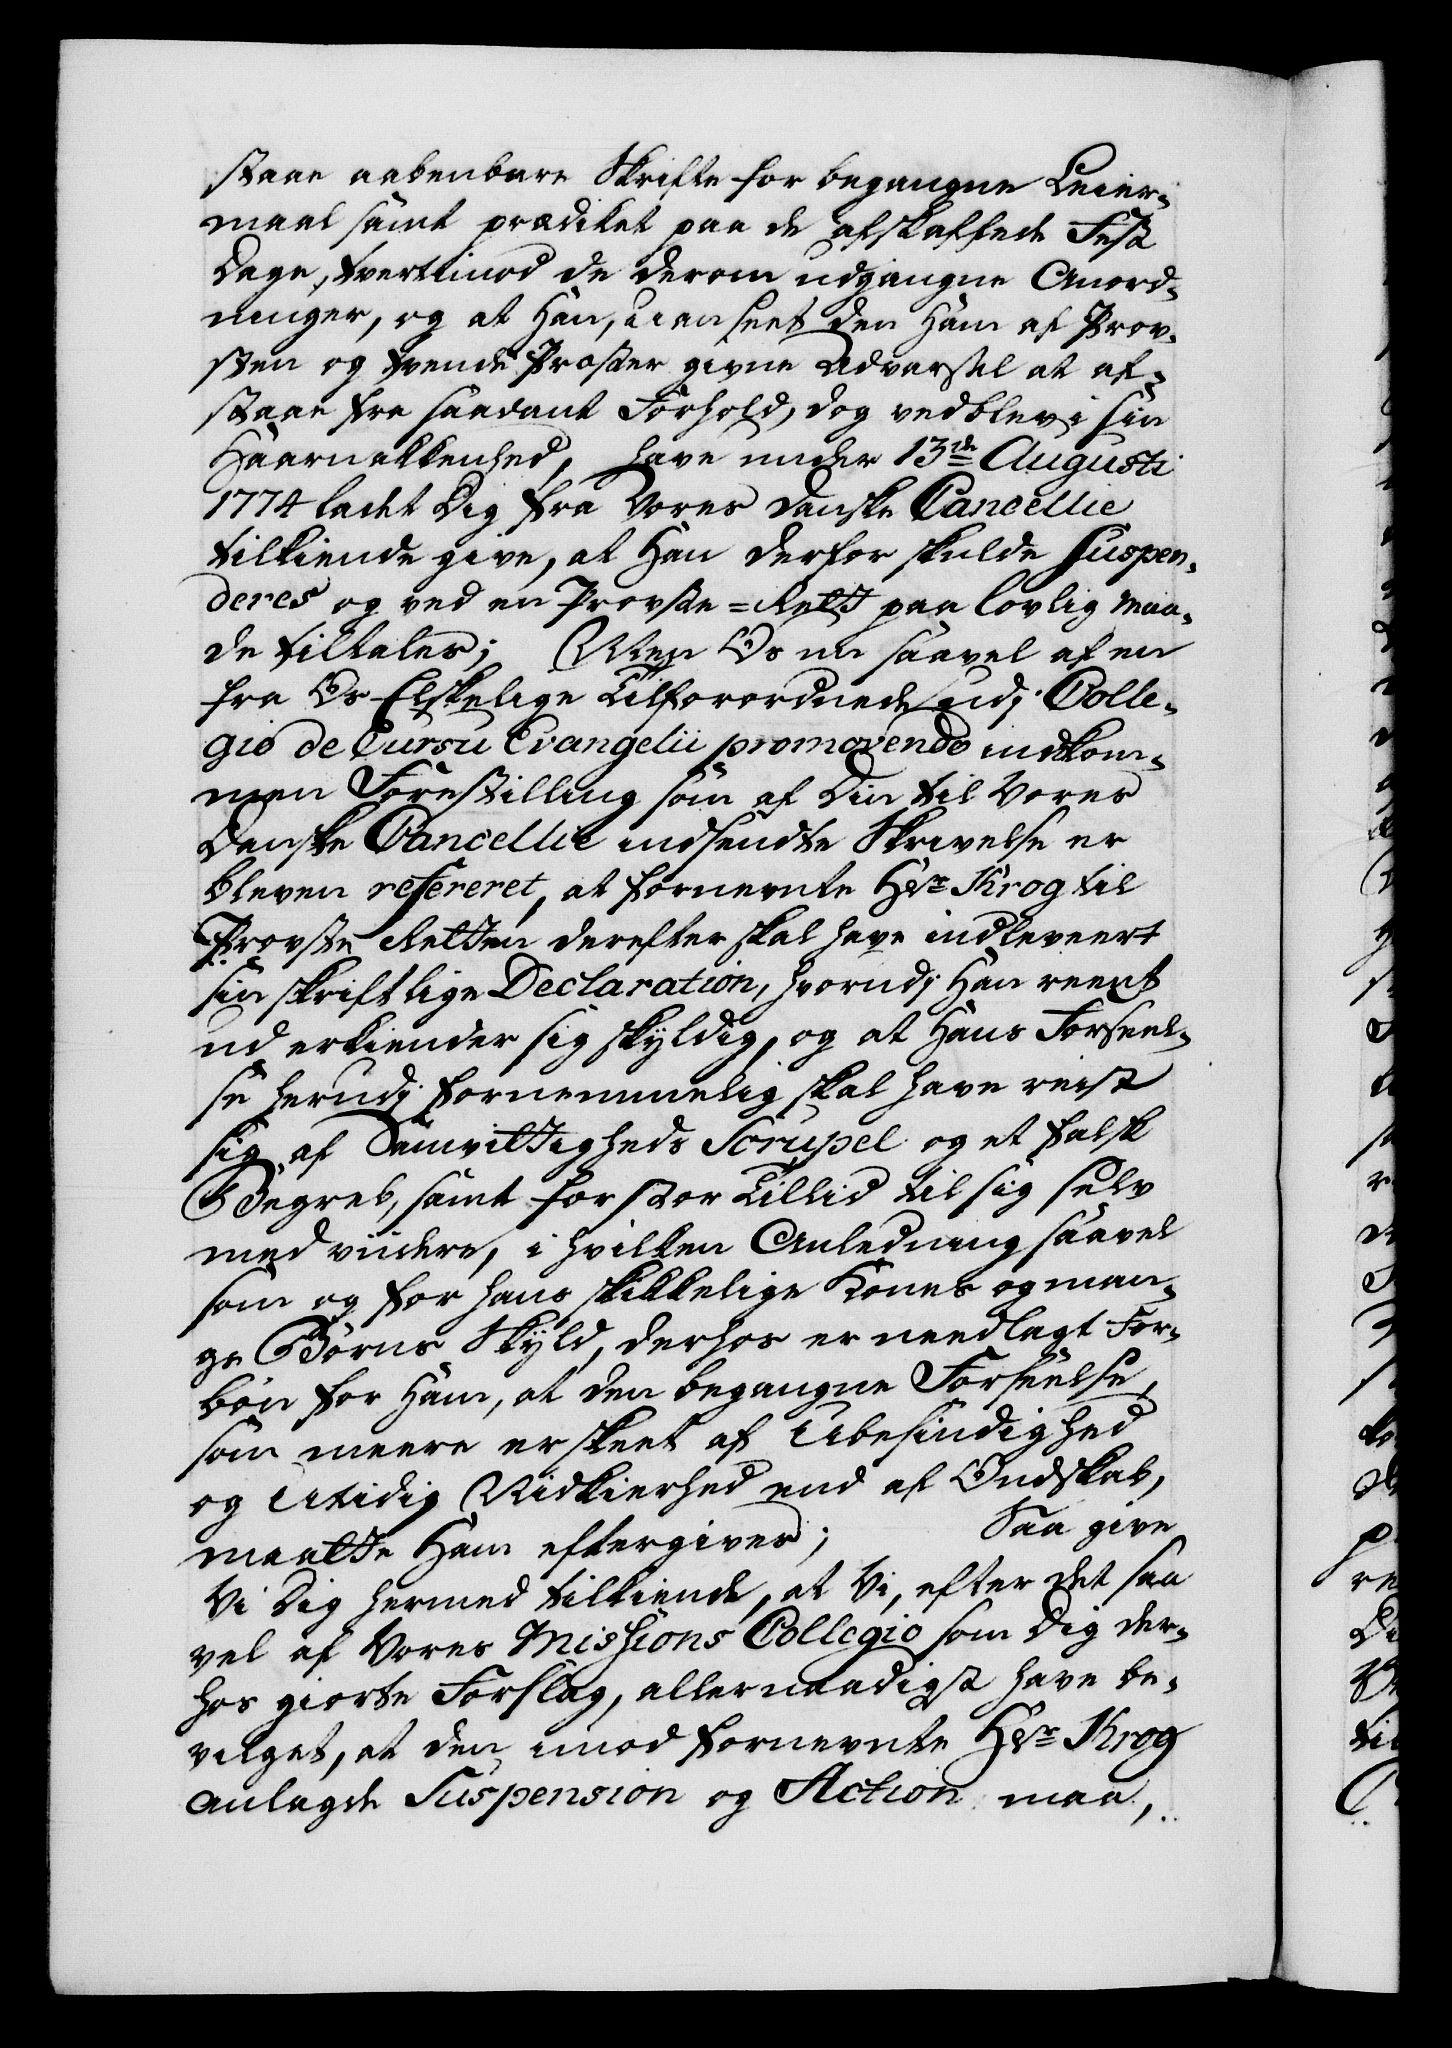 staae aabenbare Skrifte for begangne Leier-
maal samt prædiket paa de afskaffede Fest
Dage, tvertimod de derom udgangne Anord-
ninger, og at Han, uanseet den Ham af Prov-
sten og tvende Præster givne Advarsel at af-
staae fra saadant Forhold, dog vedblev i sin
Haarnakkenhed, have under 13de Augusti
1774 ladet Dig fra Vores Danske Cancellie
tilkiende give, at Han derfor skulde suspen-
deres og ved en Provste-Rett paa lovlig Maa-
de tiltales; Men Os nu saavel af en
fra Os Elskelige Tilforordnede udj Colle-
gio de Cursu Evangelii promovendo indkom-
men Forestilling som af Din til Vores
Danske Cancellie indsendte Skrivelse er
bleven refereret, at fornevnte Hr Krog til
Provste Retten derefter skal have indleveert
sin skriftlige Declaration, hvorudj Han reent
ud erkiender sig skyldig, og at Hans Forseel-
se herudj fornemmelig skal have reist
sig af Samvittigheds Scrupel og et falsk
Begreb, samt for stor Tillid til sig selv
med viidere, i hvilken Anledning saavel
som og for hans skikkelige Kones og man-
ge Børns Skyld, derhos er needlagt For-
bøn for Ham, at den begangne Forseelse,
som meere er skeet af Ubesindighed
og Utidig Nidkierhed end af Ondskab,
maatte Ham eftergives; Saa give
Vi Dig hermed tilkiende, at Vi, efter det saa
vel af Vores Missions Collegio som Dig der-
hos giorte Forslag, allernaadigst have be-
vilget, at den imod fornevnte Hr Krog
anlagde Suspension og Action maa,